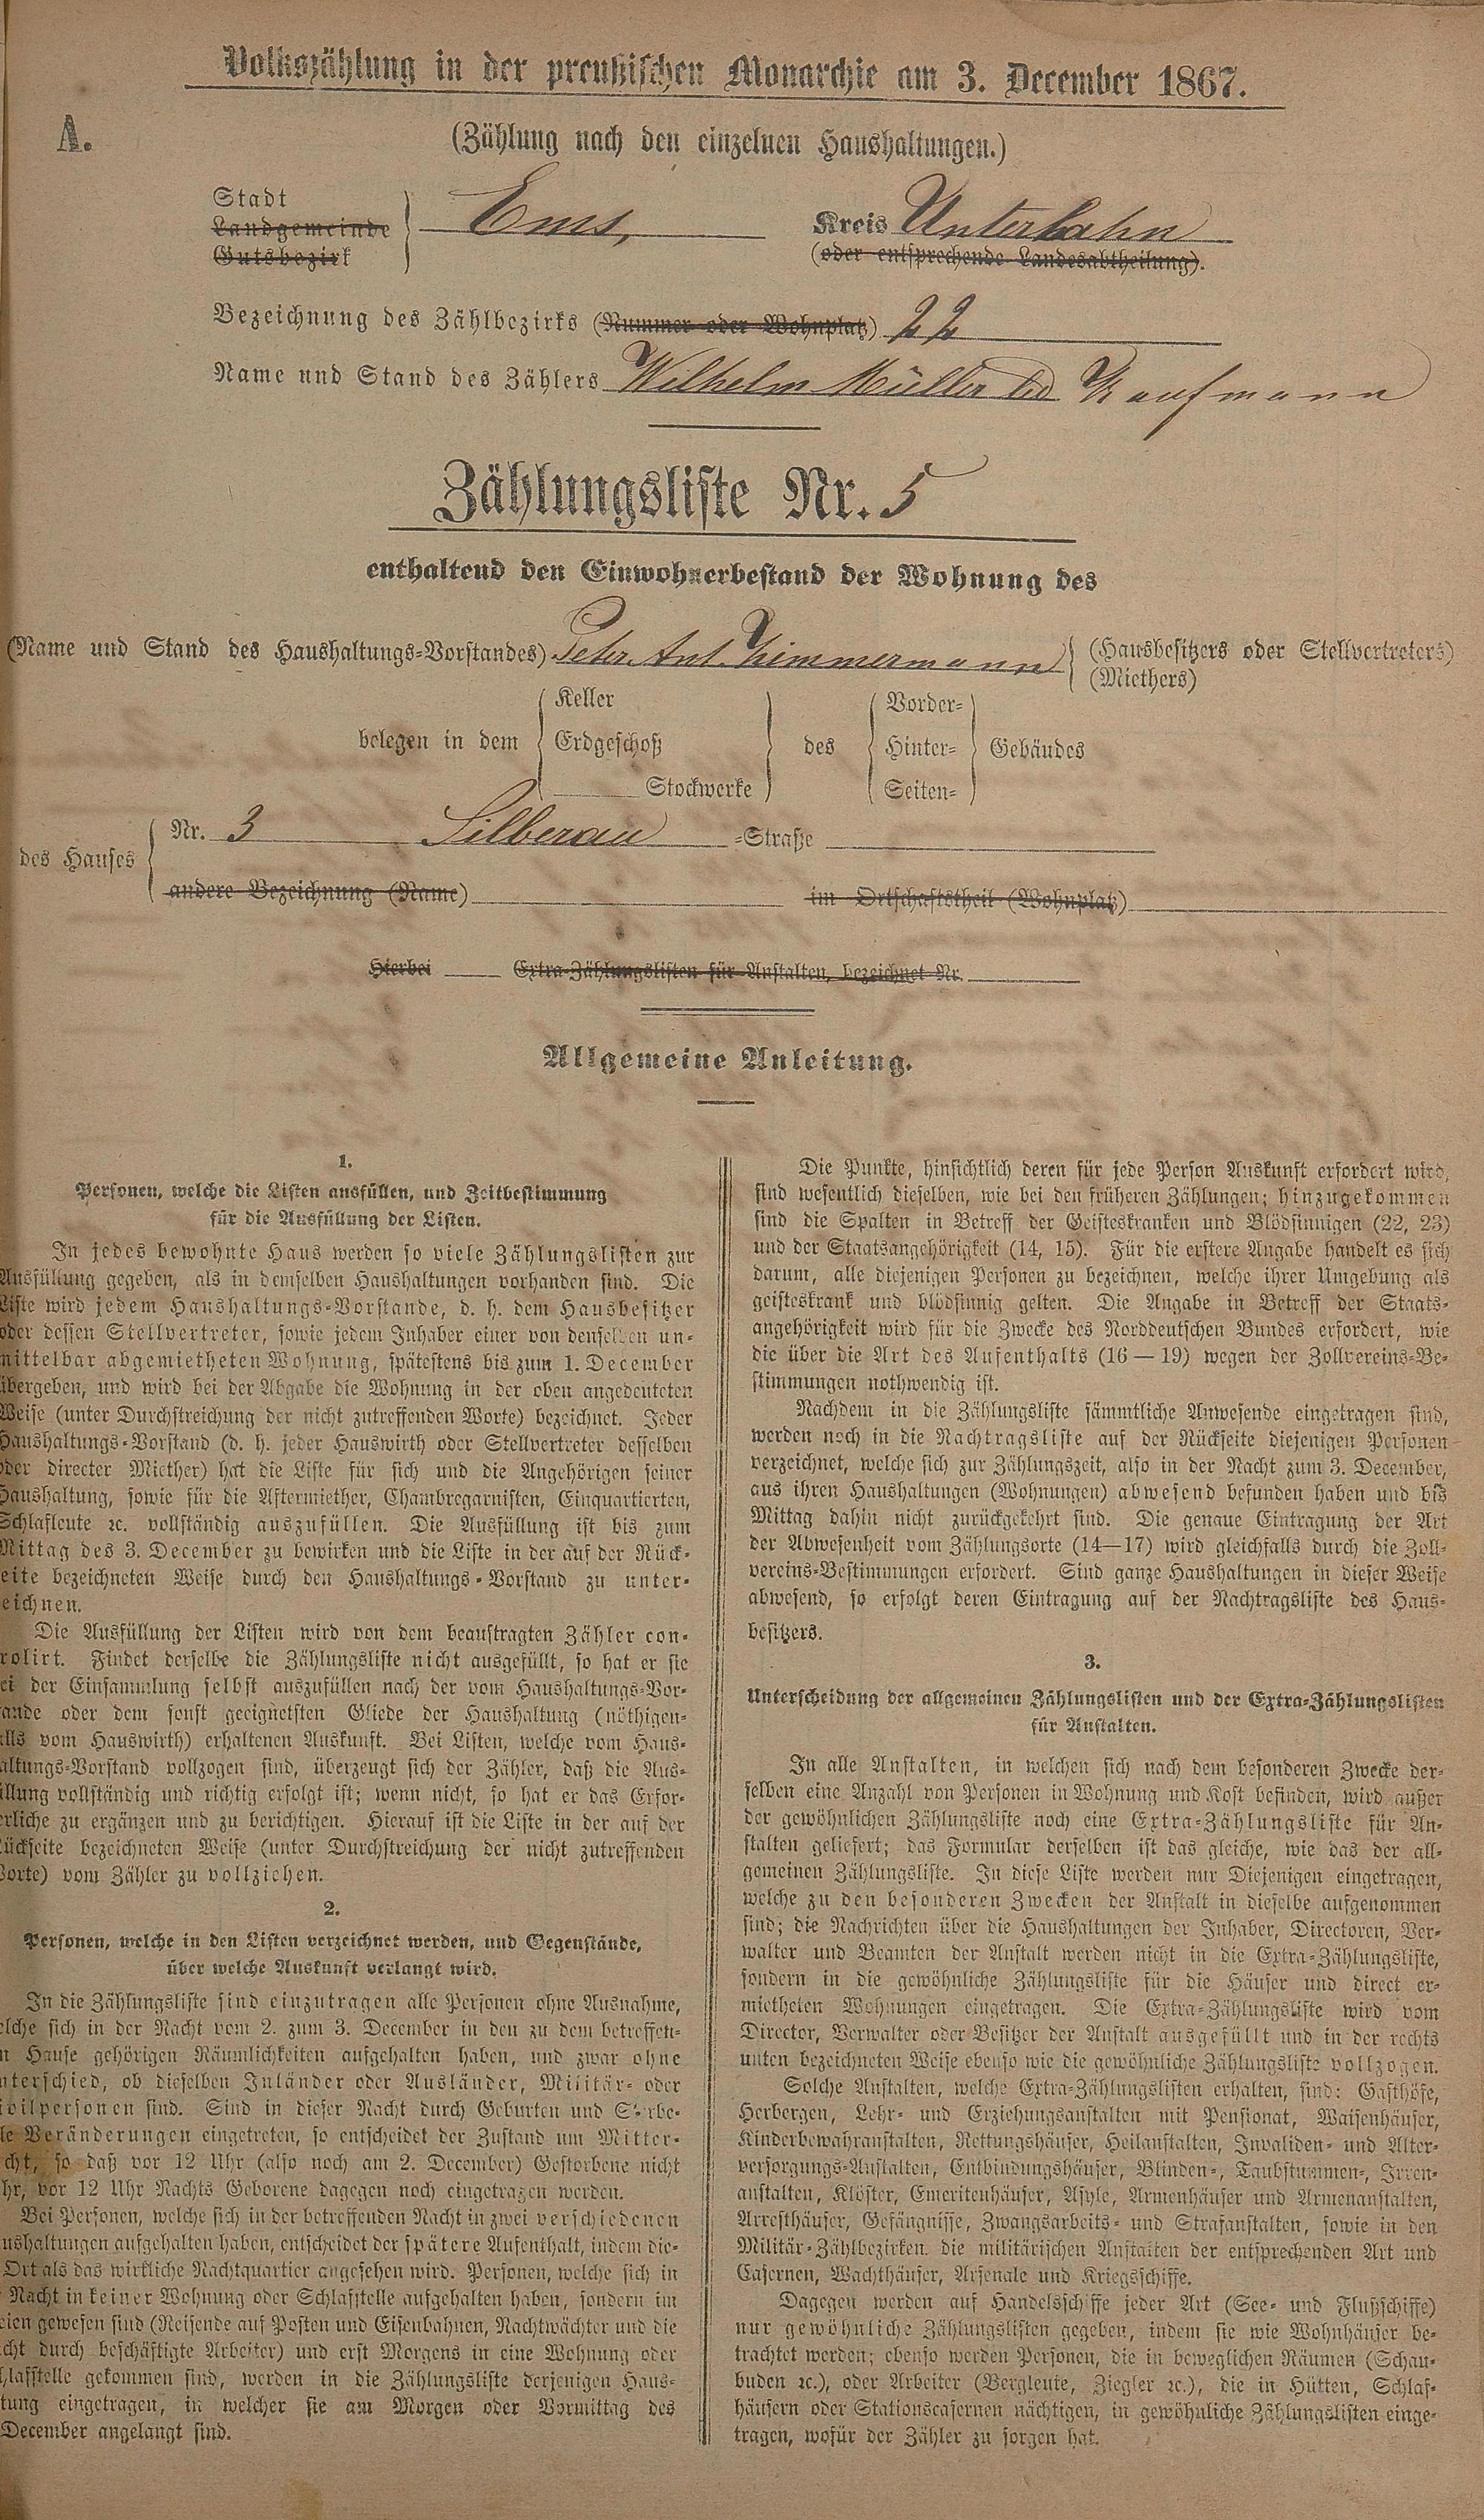 Volkszählung in der preußischen Monarchie am 3. December 1867.
A.
(Zählung nach den einzelnen Haushaltungen.)
Stadt
Landgemeinde
Gutsbezirk
Ems,
Kreis Unterlahn
(oder entsprechende Landesabtheilung).
Bezeichnung des Zählbezirks (Nummer oder Wohnplatz) 22
Name und Stand des Zählers Wilhelm Müller led Kaufmann
Zählungsliste Nr. 5
enthaltend den Einwohnerbestand der Wohnung des
(Name und Stand des Haushaltungs-Vorstandes) Peter Ant. Zimmermann (Hausbesitzers oder Stellvertreters)
(Miethers)
Keller
Vorder-
belegen in dem Erdgeschoß des Hinter- Gebäudes
Stockwerke
Seiten-
des Hauses
Nr. 3 Silberau -Straße
andere Bezeichnung (Name) im Ortschaftstheil (Wohnplatz)
Hierbei Extra-Zählungslisten für Anstalten, bezeichnet Nr.
Allgemeine Anleitung.
1.
Personen, welche die Listen ausfüllen, und Zeitbestimmung
für die Ausfüllung der Listen.
In jedes bewohnte Haus werden so viele Zählungslisten zur
Ausfüllung gegeben, als in demselben Haushaltungen vorhanden sind. Die
Liste wird jedem Haushaltungs-Vorstande, d. h. dem Hausbesitzer
oder dessen Stellvertreter, sowie jedem Inhaber einer von denselben un-
mittelbar abgemietheten Wohnung, spätestens bis zum 1. December
übergeben, und wird bei der Abgabe die Wohnung in der oben angedeuteten
Weise (unter Durchstreichung der nicht zutreffenden Worte) bezeichnet. Jeder
Haushaltungs-Vorstand (d. h. jeder Hauswirth oder Stellvertreter desselben
oder directer Miether) hat die Liste für sich und die Angehörigen seiner
Haushaltung, sowie für die Aftermiether, Chambregarnisten, Einquartierten,
Schlafleute ꝛc. vollständig auszufüllen. Die Ausfüllung ist bis zum
Mittag des 3. December zu bewirken und die Liste in der auf der Rück-
eite bezeichneten Weise durch den Haushaltungs-Vorstand zu unter-
eichnen.
Die Ausfüllung der Listen wird von dem beauftragten Zähler con-
rolirt. Findet derselbe die Zählungsliste nicht ausgefüllt, so hat er sie
ei der Einsammlung selbst auszufüllen nach der vom Haushaltungs-Vor-
ande oder dem sonst geeignetsten Gliede der Haushaltung (nöthigen-
lls vom Hauswirth) erhaltenen Auskunft. Bei Listen, welche vom Haus-
altungs-Vorstand vollzogen sind, überzeugt sich der Zähler, daß die Aus-
llung vollständig und richtig erfolgt ist; wenn nicht, so hat er das Erfor-
erliche zu ergänzen und zu berichtigen. Hierauf ist die Liste in der auf der
ückseite bezeichneten Weise (unter Durchstreichung der nicht zutreffenden
Worte) vom Zähler zu vollziehen.
2.
Personen, welche in den Listen verzeichnet werden, und Gegenstände,
über welche Auskunft verlangt wird.
In die Zählungsliste sind einzutragen alle Personen ohne Ausnahme,
elche sich in der Nacht vom 2. zum 3. December in den zu dem betreffen-
n Hause gehörigen Räumlichkeiten aufgehalten haben, und zwar ohne
nterschied, ob dieselben Inländer oder Ausländer, Militär- oder
ivilpersonen sind. Sind in dieser Nacht durch Geburten und Sterbe-
le Veränderungen eingetreten, so entscheidet der Zustand um Mitter-
cht, so daß vor 12 Uhr (also noch am 2. December) Gestorbene nicht
hr, vor 12 Uhr Nachts Geborene dagegen noch eingetragen werden.
Bei Personen, welche sich in der betreffenden Nacht in zwei verschiedenen
ushaltungen aufgehalten haben, entscheidet der spätere Aufenthalt, indem die-
Ort als das wirkliche Nachtquartier angesehen wird. Personen, welche sich in
Nacht in keiner Wohnung oder Schlafstelle aufgehalten haben, sondern im
eien gewesen sind (Reisende auf Posten und Eisenbahnen, Nachtwächter und die
cht durch beschäftigte Arbeiter) und erst Morgens in eine Wohnung oder
hlafstelle gekommen sind, werden in die Zählungsliste derjenigen Haus-
tung eingetragen, in welcher sie am Morgen oder Vormittag des
December angelangt sind.
Die Punkte, hinsichtlich deren für jede Person Auskunft erfordert wird,
sind wesentlich dieselben, wie bei den früheren Zählungen; hinzugekommen
sind die Spalten in Betreff der Geisteskranken und Blödsinnigen (22, 23)
und der Staatsangehörigkeit (14, 15). Für die erstere Angabe handelt es sich
darum, alle diejenigen Personen zu bezeichnen, welche ihrer Umgebung als
geisteskrank und blödsinnig gelten. Die Angabe in Betreff der Staats-
angehörigkeit wird für die Zwecke des Norddeutschen Bundes erfordert, wie
die über die Art des Aufenthalts (16—19) wegen der Zollvereins-Be-
stimmungen nothwendig ist.
Nachdem in die Zählungsliste sämmtliche Anwesende eingetragen sind,
werden noch in die Nachtragsliste auf der Rückseite diejenigen Personen
verzeichnet, welche sich zur Zählungszeit, also in der Nacht zum 3. December,
aus ihren Haushaltungen (Wohnungen) abwesend befunden haben und bis
Mittag dahin nicht zurückgekehrt sind. Die genaue Eintragung der Art
der Abwesenheit vom Zählungsorte (14—17) wird gleichfalls durch die Zoll-
vereins-Bestimmungen erfordert. Sind ganze Haushaltungen in dieser Weise
abwesend, so erfolgt deren Eintragung auf der Nachtragsliste des Haus-
besitzers.
3.
Unterscheidung der allgemeinen Zählungslisten und der Extra-Zählungslisten
für Anstalten.
In alle Anstalten, in welchen sich nach dem besonderen Zwecke der-
selben eine Anzahl von Personen in Wohnung und Kost befinden, wird außer
der gewöhnlichen Zählungsliste noch eine Extra-Zählungsliste für An-
stalten geliefert; das Formular derselben ist das gleiche, wie das der all-
gemeinen Zählungsliste. In diese Liste werden nur Diejenigen eingetragen,
welche zu den besonderen Zwecken der Anstalt in dieselbe aufgenommen
sind; die Nachrichten über die Haushaltungen der Inhaber, Directoren, Ver-
walter und Beamten der Anstalt werden nicht in die Extra-Zählungsliste,
sondern in die gewöhnliche Zählungsliste für die Häuser und direct er-
mietheten Wohnungen eingetragen. Die Extra-Zählungsliste wird vom
Director, Verwalter oder Besitzer der Anstalt ausgefüllt und in der rechts
unten bezeichneten Weise ebenso wie die gewöhnliche Zählungsliste vollzogen.
Solche Anstalten, welche Extra-Zählungslisten erhalten, sind: Gasthöfe,
Herbergen, Lehr- und Erziehungsanstalten mit Pensionat, Waisenhäuser,
Kinderbewahranstalten, Rettungshäuser, Heilanstalten, Invaliden- und Alter-
versorgungs-Anstalten, Entbindungshäuser, Blinden-, Taubstummen-, Irren-
anstalten, Klöster, Emeritenhäuser, Asyle, Armenhäuser und Armenanstalten,
Arresthäuser, Gefängnisse, Zwangsarbeits- und Strafanstalten, sowie in den
Militär-Zählbezirken die militärischen Anstalten der entsprechenden Art und
Casernen, Wachthäuser, Arsenale und Kriegsschiffe.
Dagegen werden auf Handelsschiffe jeder Art (See- und Flußschiffe)
nur gewöhnliche Zählungslisten gegeben, indem sie wie Wohnhäuser be-
trachtet werden; ebenso werden Personen, die in beweglichen Räumen (Schau-
buden ꝛc.), oder Arbeiter (Bergleute, Ziegler ꝛc.), die in Hütten, Schlaf-
häusern oder Stationscasernen nächtigen, in gewöhnliche Zählungslisten einge-
tragen, wofür der Zähler zu sorgen hat.